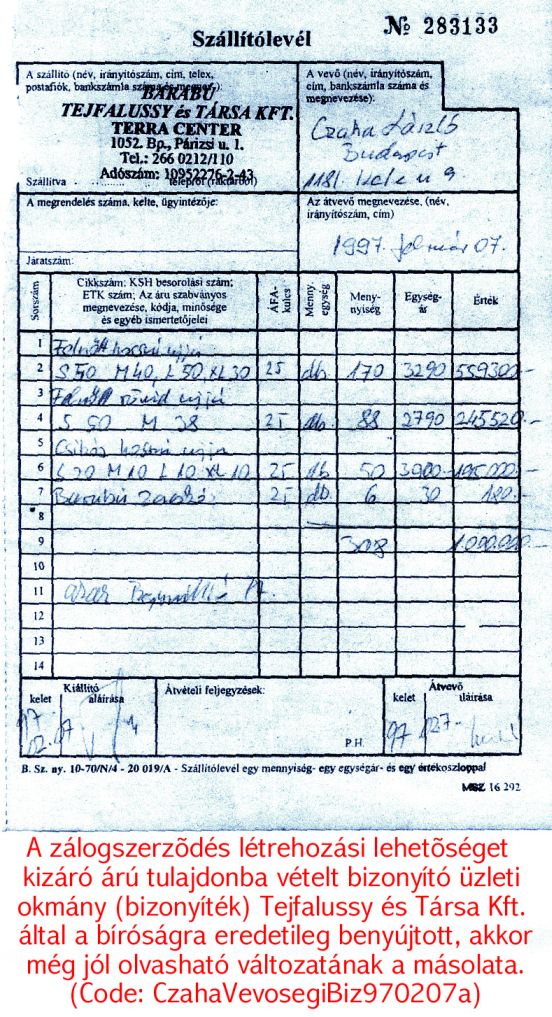 Szállítólevél
№ 283133
A szállító (név, irányítószám, cím, telex,
postafiók, bankszámla száma és megnev.):
BARABÚ
TEJFALUSSY és TÁRSA KFT.
TERRA CENTER
1052. Bp., Párizsi u. 1.
Tel.: 266 0212/110
Adószám: 10952276-2-43
Szállítva telepről (raktárból)
A vevő (név, irányítószám,
cím, bankszámla száma és
megnevezése):
Czaha László
Budapest
1181.
A megrendelés száma, kelte, ügyintézője:
Járatszám:
Az átvevő megnevezése, (név,
irányítószám, cím)
1997. február 07.
Sorszám
Cikkszám; KSH besorolási szám;
ETK szám; Az áru szabványos
megnevezése, kódja, minősége
és egyéb ismertetőjelei
ÁFA-kulcs
Menny. egység
Meny-nyiség
Egység-ár
Érték
1 Felnőtt hosszú ujjú
2 S 50 M 40, L 50, XL 30 25 db 170 3290 559300.-
3 Felnőtt rövid ujjú
4 S 50 M 38 25 db 88 2790 245520.-
5 hosszú ujjú
6 S 20 M 10 L 10 XL 10 25 db 50 3900 195.000.-
7 25 db 6 30 180.-
8
9 308 1.000.000.-
10
11
12
13
14
Kiállító
kelet aláírása
97
Átvételi feljegyzések:
P.H.
Átvevő
kelet aláírása
97
B. Sz. ny. 10-70/N/4 - 20 019/A - Szállítólevél egy mennyiség- egy egységár- és egy értékoszloppal
MSZ 16 292
A zálogszerzõdés létrehozási lehetõséget
kizáró árú tulajdonba vételt bizonyító üzleti
okmány (bizonyíték) Tejfalussy és Társa Kft.
által a bíróságra eredetileg benyújtott, akkor
még jól olvasható változatának a másolata.
(Code: CzahaVevosegiBiz970207a)